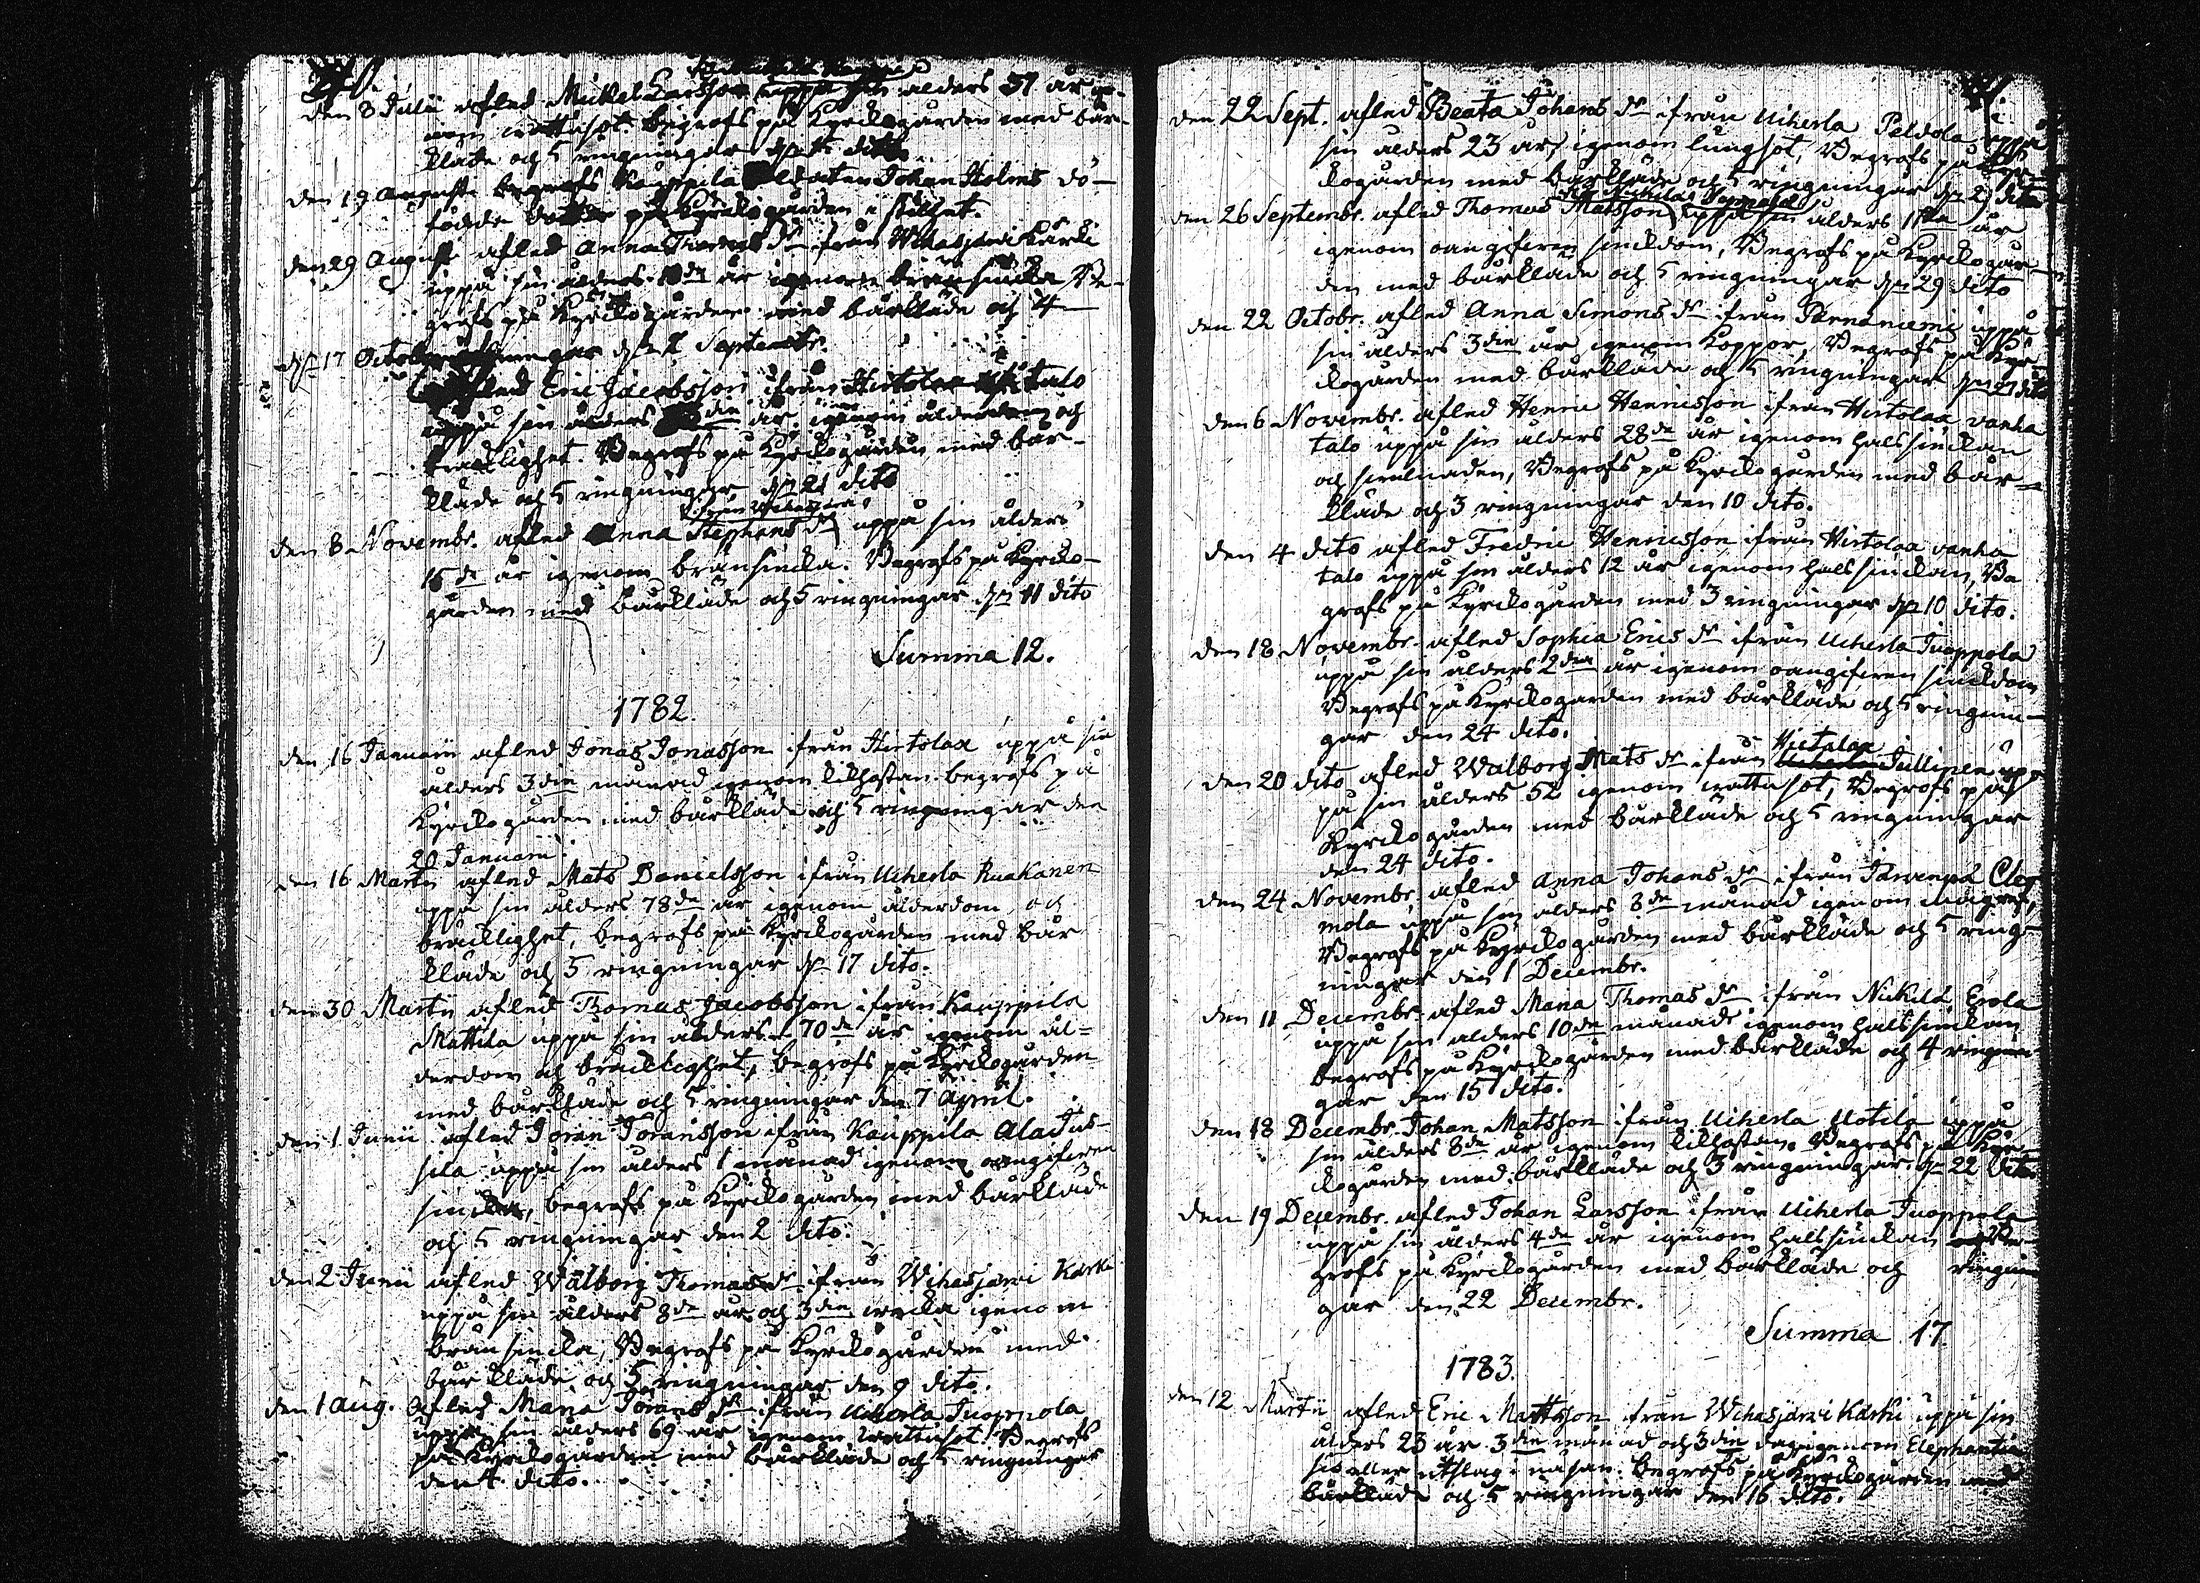 den 8 Julii afled Mickel Larsson uppå sin ålders 57 år ige-
nom wattusot. Begrofs på Kyrckogården med bår-
kläde och 5 ringningar dito
den 19 Augusti begrofs Kauppila Soldaten Johan Holms dö-
födde på Kyrckogården i stillhet.
den 29 Augusti afled Anna Thomas dr ifrån Wihasjärvi Karki
uppå sin ålders 10de år igenom bränsiucka Be-
grofs på Kyrckogården med bårkläde och 4
ringningar den 2 Septembr.
dn 17 Octobr
afled Eric Jacobsson ifrån Hirtolax talo
uppå sin ålders die år igenom ålderdom och
bräcklighet. Begrofs på Kyrckogården med bår-
kläde och 5 ringningar dn 21 dito
ifrån Wihasjärvi
den 8 Novembr. afled Anna Stephens dr uppå sin ålders
15de år igenom bränsiucka. Begrofs på Kyrcko-
gården med bårkläde och 5 ringningar dn 11 dito
Summa 12.
1782.
den 16 Januarii afled Jonas Jonasson ifrån Hirtolax uppå sin
ålders 3die månad igenom kikhostan begrofs på
Kyrckogården med bårkläde och 5 ringningar den
20 Januarii.
den 16 Martii afled Mats Danielsson ifrån Uiherla Ruakanen
uppå sin ålders 78de år igenom ålderdom och
bräcklighet, begrofs på Kyrckogården med bår
kläde och 5 ringningar dn 17 dito.
den 30 Martii afled Thomas Jacobsson ifrån Kauppila
Mattila uppå sin ålders 70de år igenom ål=
derdom och bräcklighet, begrofs på Kyrckogården
med bårkläde och 5 ringningar den 7 April.
den 1 Junii afled Jöran Jöransson ifrån Kauppila AlaJus-
sila uppå sin ålders 1 månad igenom oangifven
siucka, begrofs på Kyrckogården med bårkläde
och 5 ringningar den 2 dito.
den 2 Junii afled Walborg Thomas dr ifrån Wihasjärvi Karki
uppå sin ålders 8de år och 3die wecka igenom
bränsiucka, Begrofs på Kyrckogården med
bårkläde och 5 ringningar den 9 dito.
den 1 Aug. afled Maria Jörans dr ifrån Uiherla Tuoppola
uppå sin ålders 69 år igenom wattusot. Begrofs
på Kyrckogården med bårkläde och 5 ringningar
den 4 dito.
den 22 Sept. afled Beata Johans dr ifrån Uiherla Peldola uppå
sin ålders 23 år, igenom lungsot, Begrofs på Kyr-
ckogården med bårkläde och 5 ringningar dn 29 dito
den 26 Septembr. afled Thomas Matsson uppå sin ålders 11de år
igenom oangifven siuckdom, Begrofs på Kyrckogår-
den med bårkläde och 5 ringningar dn 29 dito
den 22 Octobr. afled Anna Simons dr ifrån Pärnäniemi uppå
sin ålders 3die år igenom Koppor, Begrofs på Kyr-
ckogården med bårkläde och 5 ringningar dn 27 dito
den 6 Novembr. afled Henric Henricsson ifrån Hirtolax vanha
talo uppå sin ålders 28de år igenom halssiuckan
och swulnaden, Begrofs på Kyrckogården med bår=
kläde och 3 ringningar den 10 dito.
den 4 dito afled Fredric Henricsson ifrån Hirtolax vanha
talo uppå sin ålders 12 år igenom halssiuckan, Be
grofs på Kyrckogården med 3 ringningar dn 10 dito.
den 18 Novembr. afled Sophia Erics dr ifrån Uiherla Tuoppola
uppå sin ålders 2dra år igenom oangifven siuckdom
Begrofs på Kyrckogården med bårkläde och 5 ringnin-
gar den 24 dito.
Hirtolax
den 20 dito afled Walborg Mats dr ifrån Jullinen up-
på sin ålders 52 igenom wattusot, Begrofs på
Kyrckogården med bårkläde och 5 ringningar
den 24 dito.
den 24 Novembr. afled Anna Johans dr ifrån Järvenpä Cle
mola uppå sin ålders 8de månad igenom
Begrofs på Kyrckogården med bårkläde och 5 ring-
ningar den 1 Decembr.
den 11 Decembr. afled Maria Thomas dr ifrån Nickilä Erola
uppå sin ålders 10de månad igenom halssiuckan
begrofs på Kyrckogården med bårkläde och 4 ringnin
gar den 15 dito.
den 18 Decembr. Johan Matsson ifrån Uiherla Uotila uppå
sin ålders 8de år igenom kikhostan. Begrofs på Kyr
ckogården med bårkläde och 3 ringningar dn 22 dito
den 19 Decembr. afled Johan Larsson ifrån Uiherla Tuoppola
uppå sin ålders 4de år igenom halssiuckan Be-
grofs på Kyrckogården med bårkläde och ringnin
gar den 22 Decembr.
Summa 17.
1783.
den 12 Martii afled Eric Mattsson ifrån Wihasjärvi Karki uppå sin
ålders 23 år 3die månad och 3die dag igenom Elephantia
sis eller utslag i näsan. begrofs på Kyrckogården med
bårkläde och 5 ringningar den 16 dito.